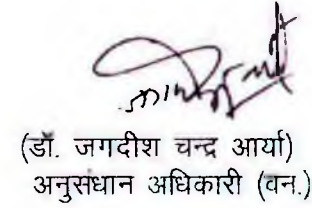 (डॉ. जगदीश चन्द्र आर्या)
अनुसंधान अधिकारी (वन.)